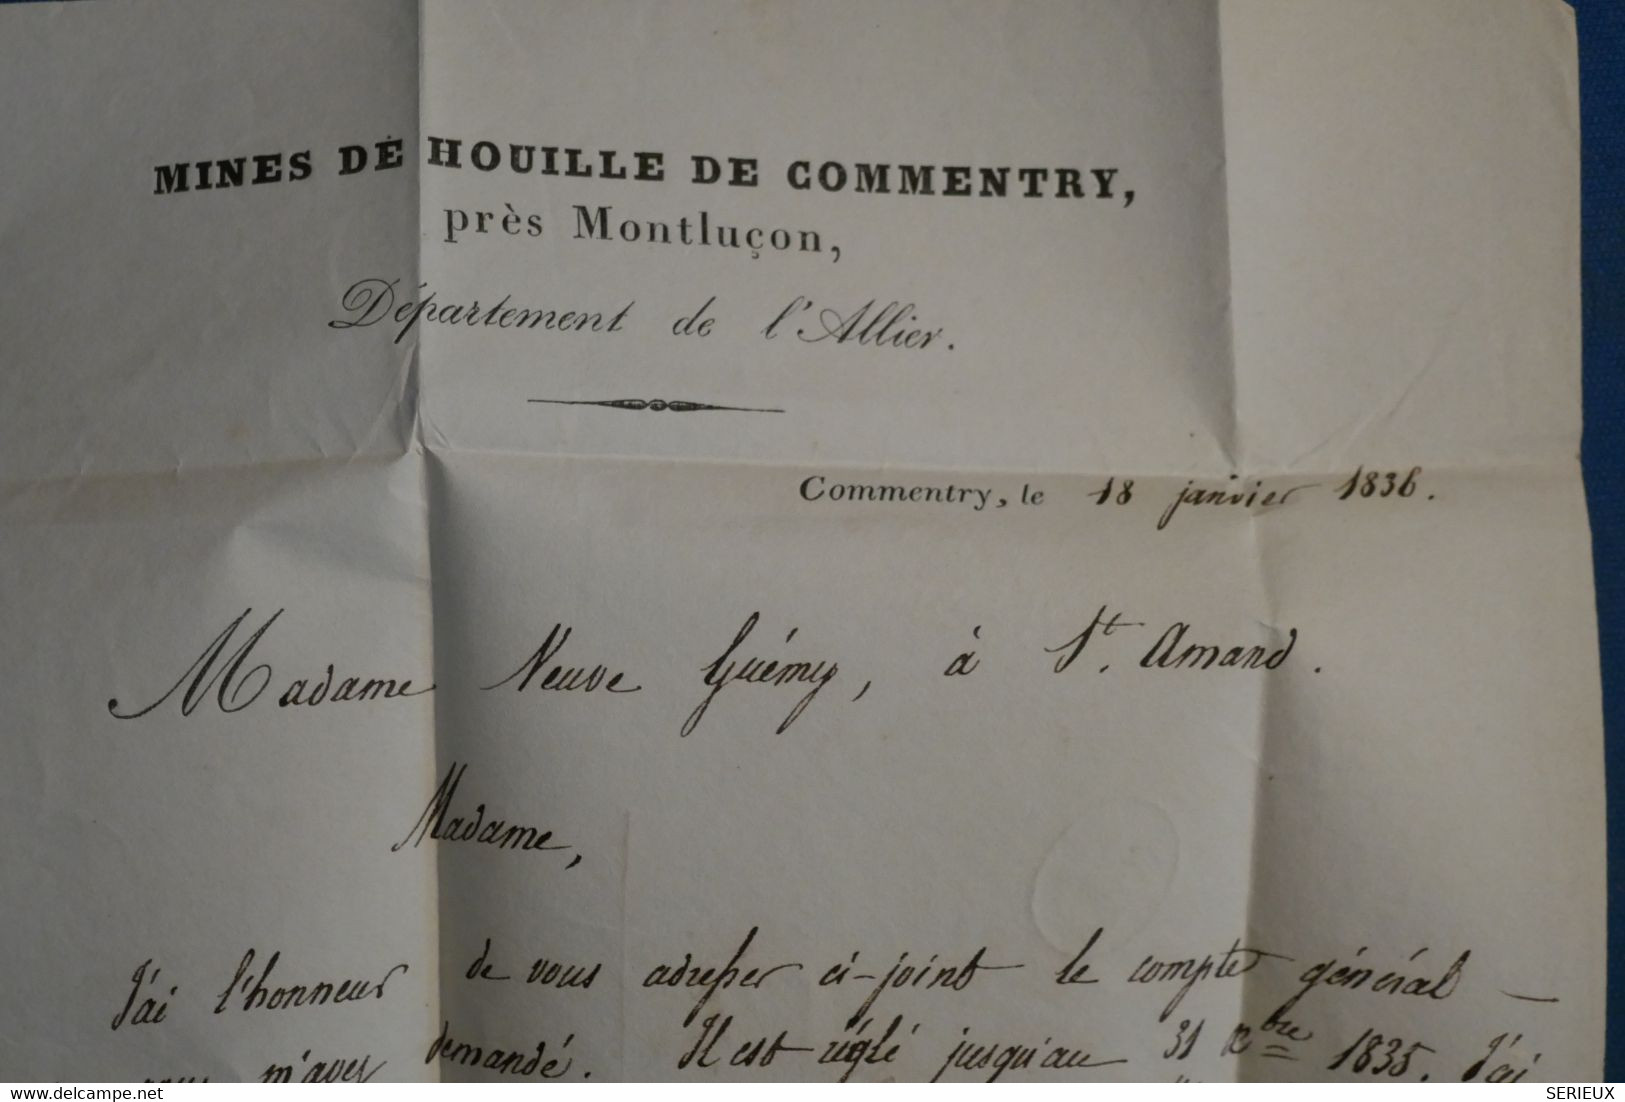 MINES DE HOUILLE DE COMMENTRY,
près Montluçon,
Département de l'Allier.
Commentry, le 18 janvier 1836.
Madame Veuve Guémy, à St. Amand.
Madame,
J'ai l'honneur de vous adresser ci-joint le compte général
vous m'avez demandé. Il est réglé jusqu'au 31 Xbre 1835. J'ai
delcampe.net
SERIEUX